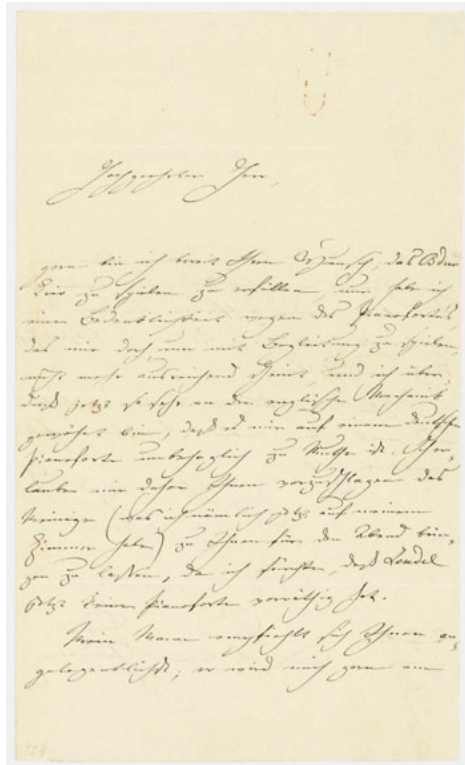 Hochgeehrter Herr,
gern bin ich bereit Ihren Wunsch, das B dur
Trio zu spielen zu erfüllen, nur habe ich
eine Bedenklichkeit wegen des Pianoforte's
das mir doch, um mit Begleitung zu spielen,
nicht mehr ausreichend scheint, und ich über,
dieß jetzt so sehr an den englischen Mechanik
gewöhnt bin, daß es mir auf einem deutschen
Pianoforte unbehaglich zu Muthe ist. Er,
lauben mir daher Ihnen vorzuschlagen das
Meinige (was ich nämlich jetzt auf meinem
Zimmer habe) zu Ihnen für den Abend brin,
gen zu lassen, da ich fürchte, daß
jetzt keinen Pianoforte vorräthig hat.
Mein Mann empfiehlt sich Ihnen an,
gelegentlichst; er wird mich gern am